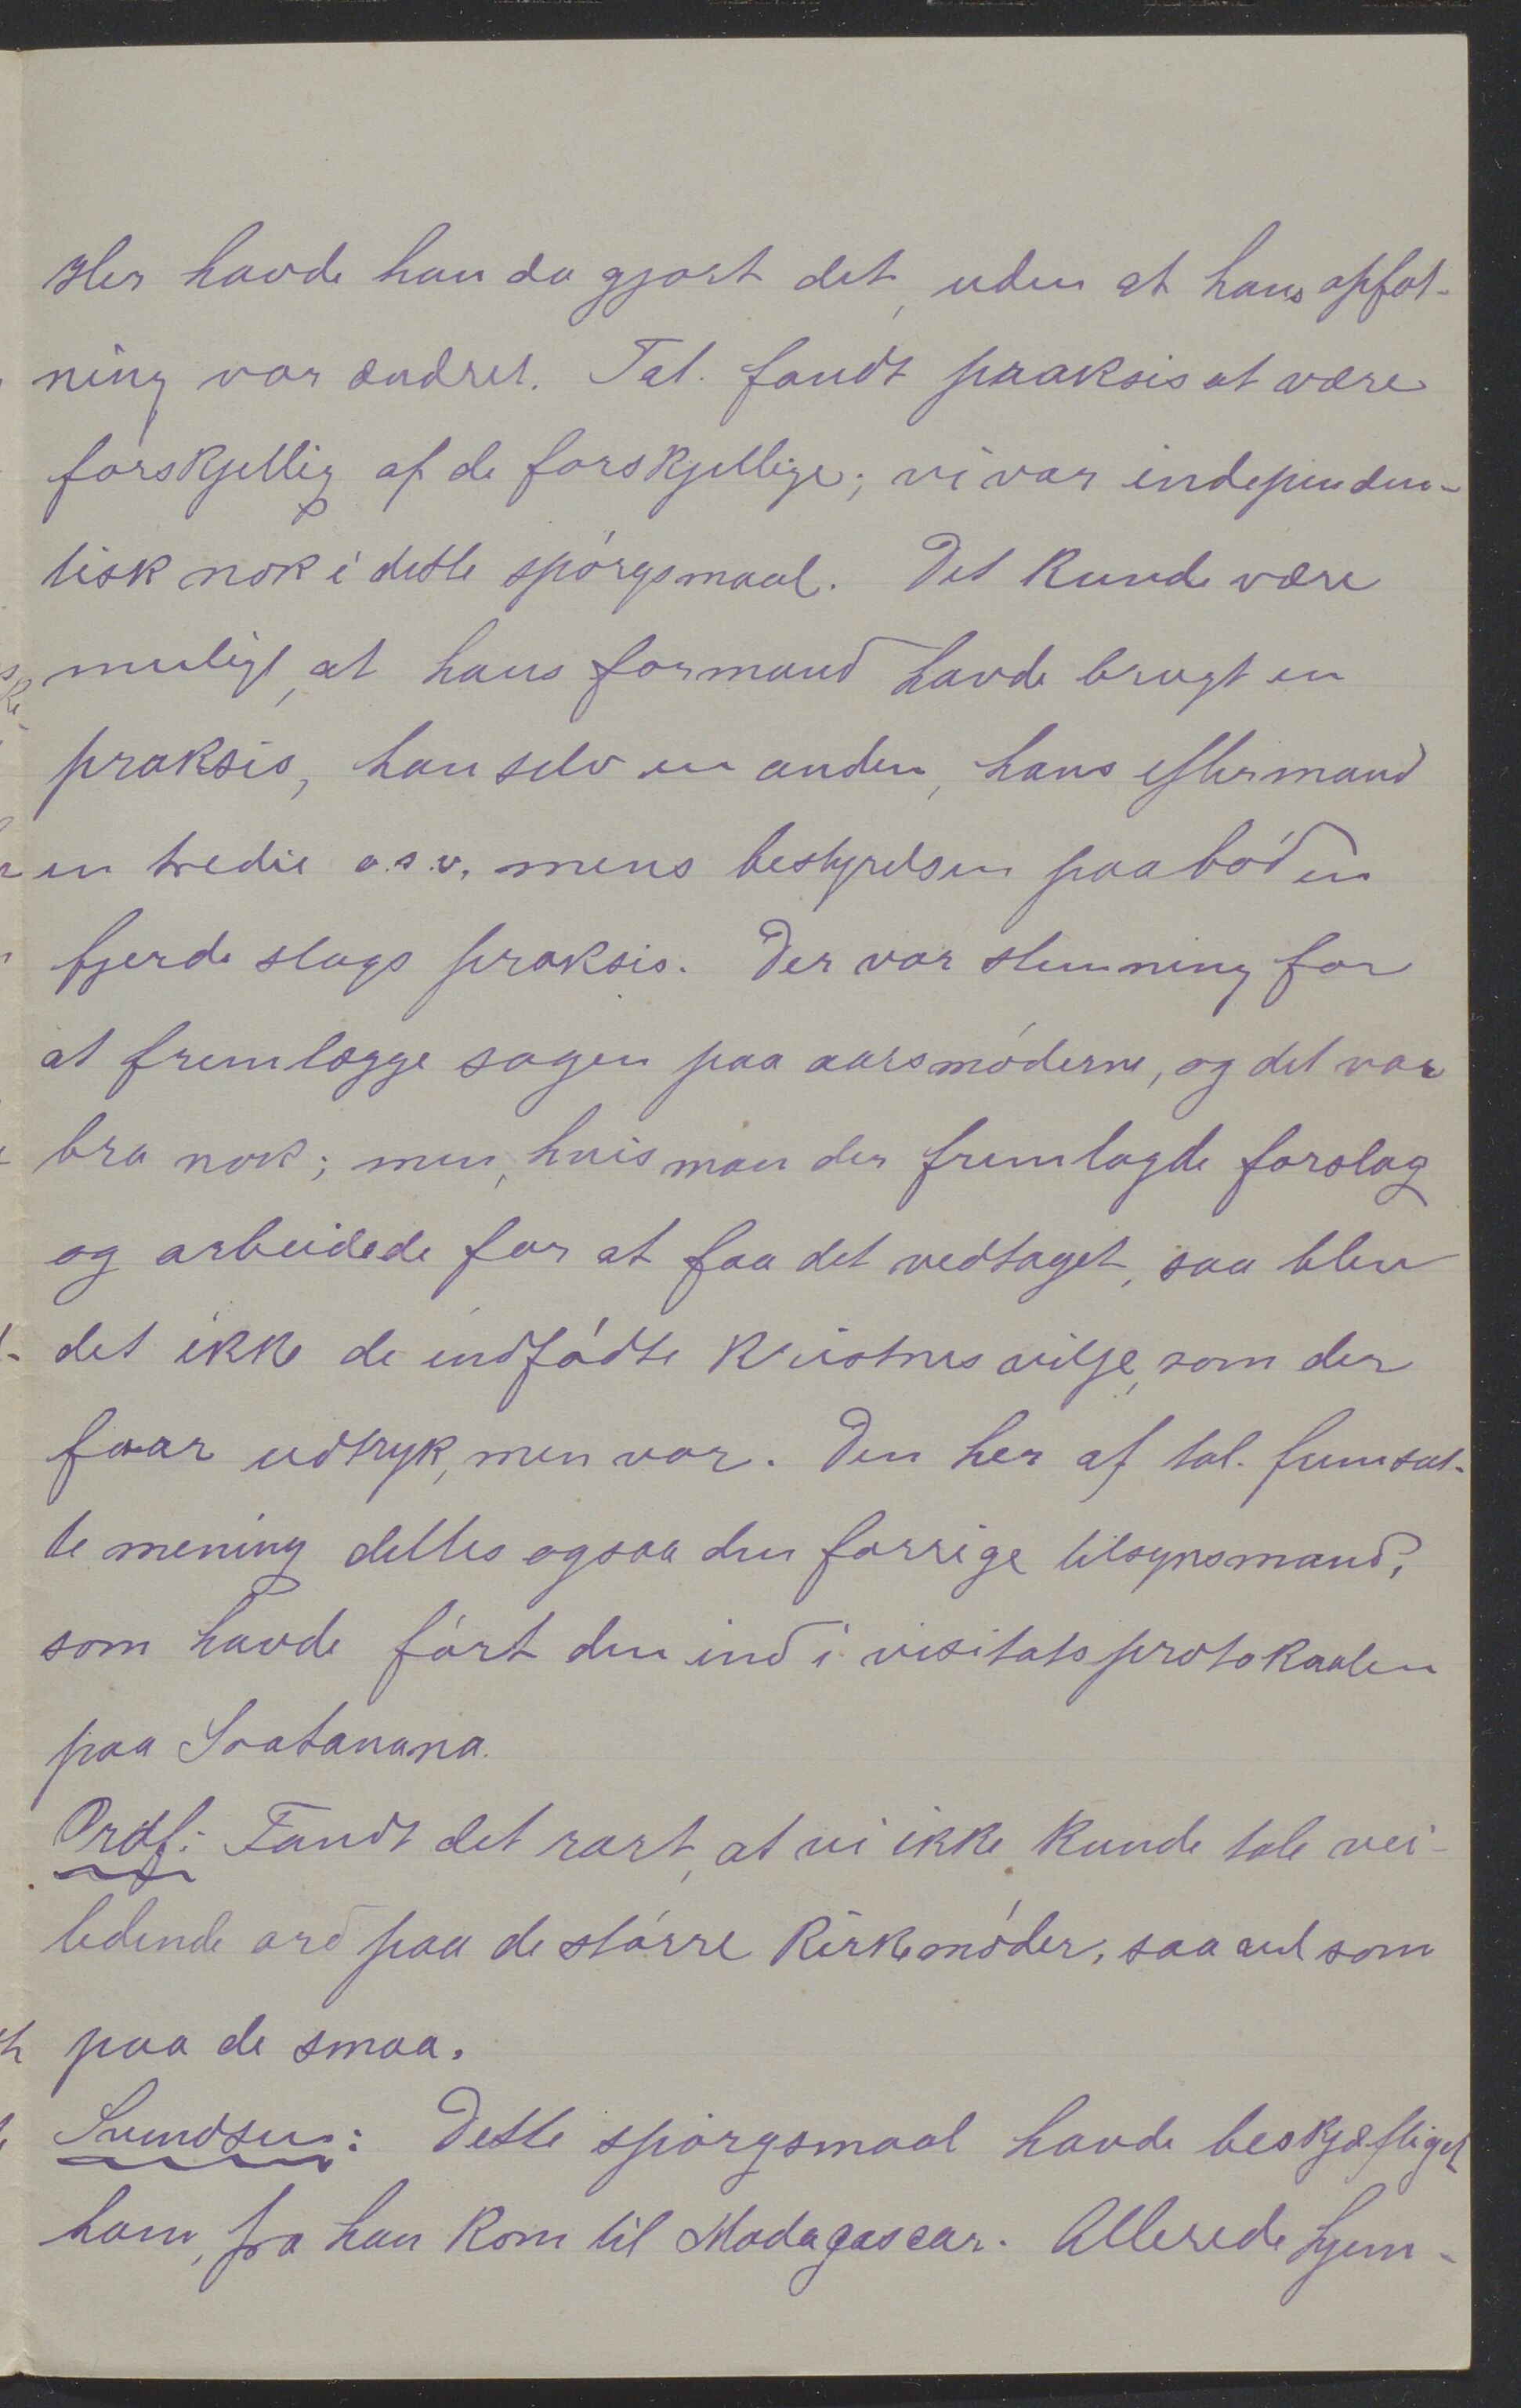 Her havde han da gjort det, uden at hans opfat-
ning var ændret. Tal. fandt praksis at være
forskjellig af de forskjellige; vi var independen-
tisk nok i dette spórgsmaal. Det kunde være
muligt, at hans formand havde brugt en
praksis, han selv en anden, hans eftermand
en tredie o.s.v. mens bestyrelsen paabód en
fjerde slags praksis. Der var stemning for
at fremlægge sagen paa aarsmóderne, og det var
bra nok; men, hvis man der fremlagde forslag
og arbeidede for at faa det vedtaget, saa blev
det ikke de indfódte kristnes vilje, som der
faar udtryk, men vor. Den her af tal. fremsat-
te mening deltes ogsaa den forrige tilsynsmand,
som havde fórt den ind i visitatsprotokollen
paa Soatanana.
Ordf: Fandt det rart, at vi ikke kunde tale vei-
ledende ord paa de stórre kirkemóder, saa vel som
paa de smaa.
Svendsen: Dette spórgsmaal havde beskjæftiget
ham, fra han kom til Madagascar. Allerede hjem-